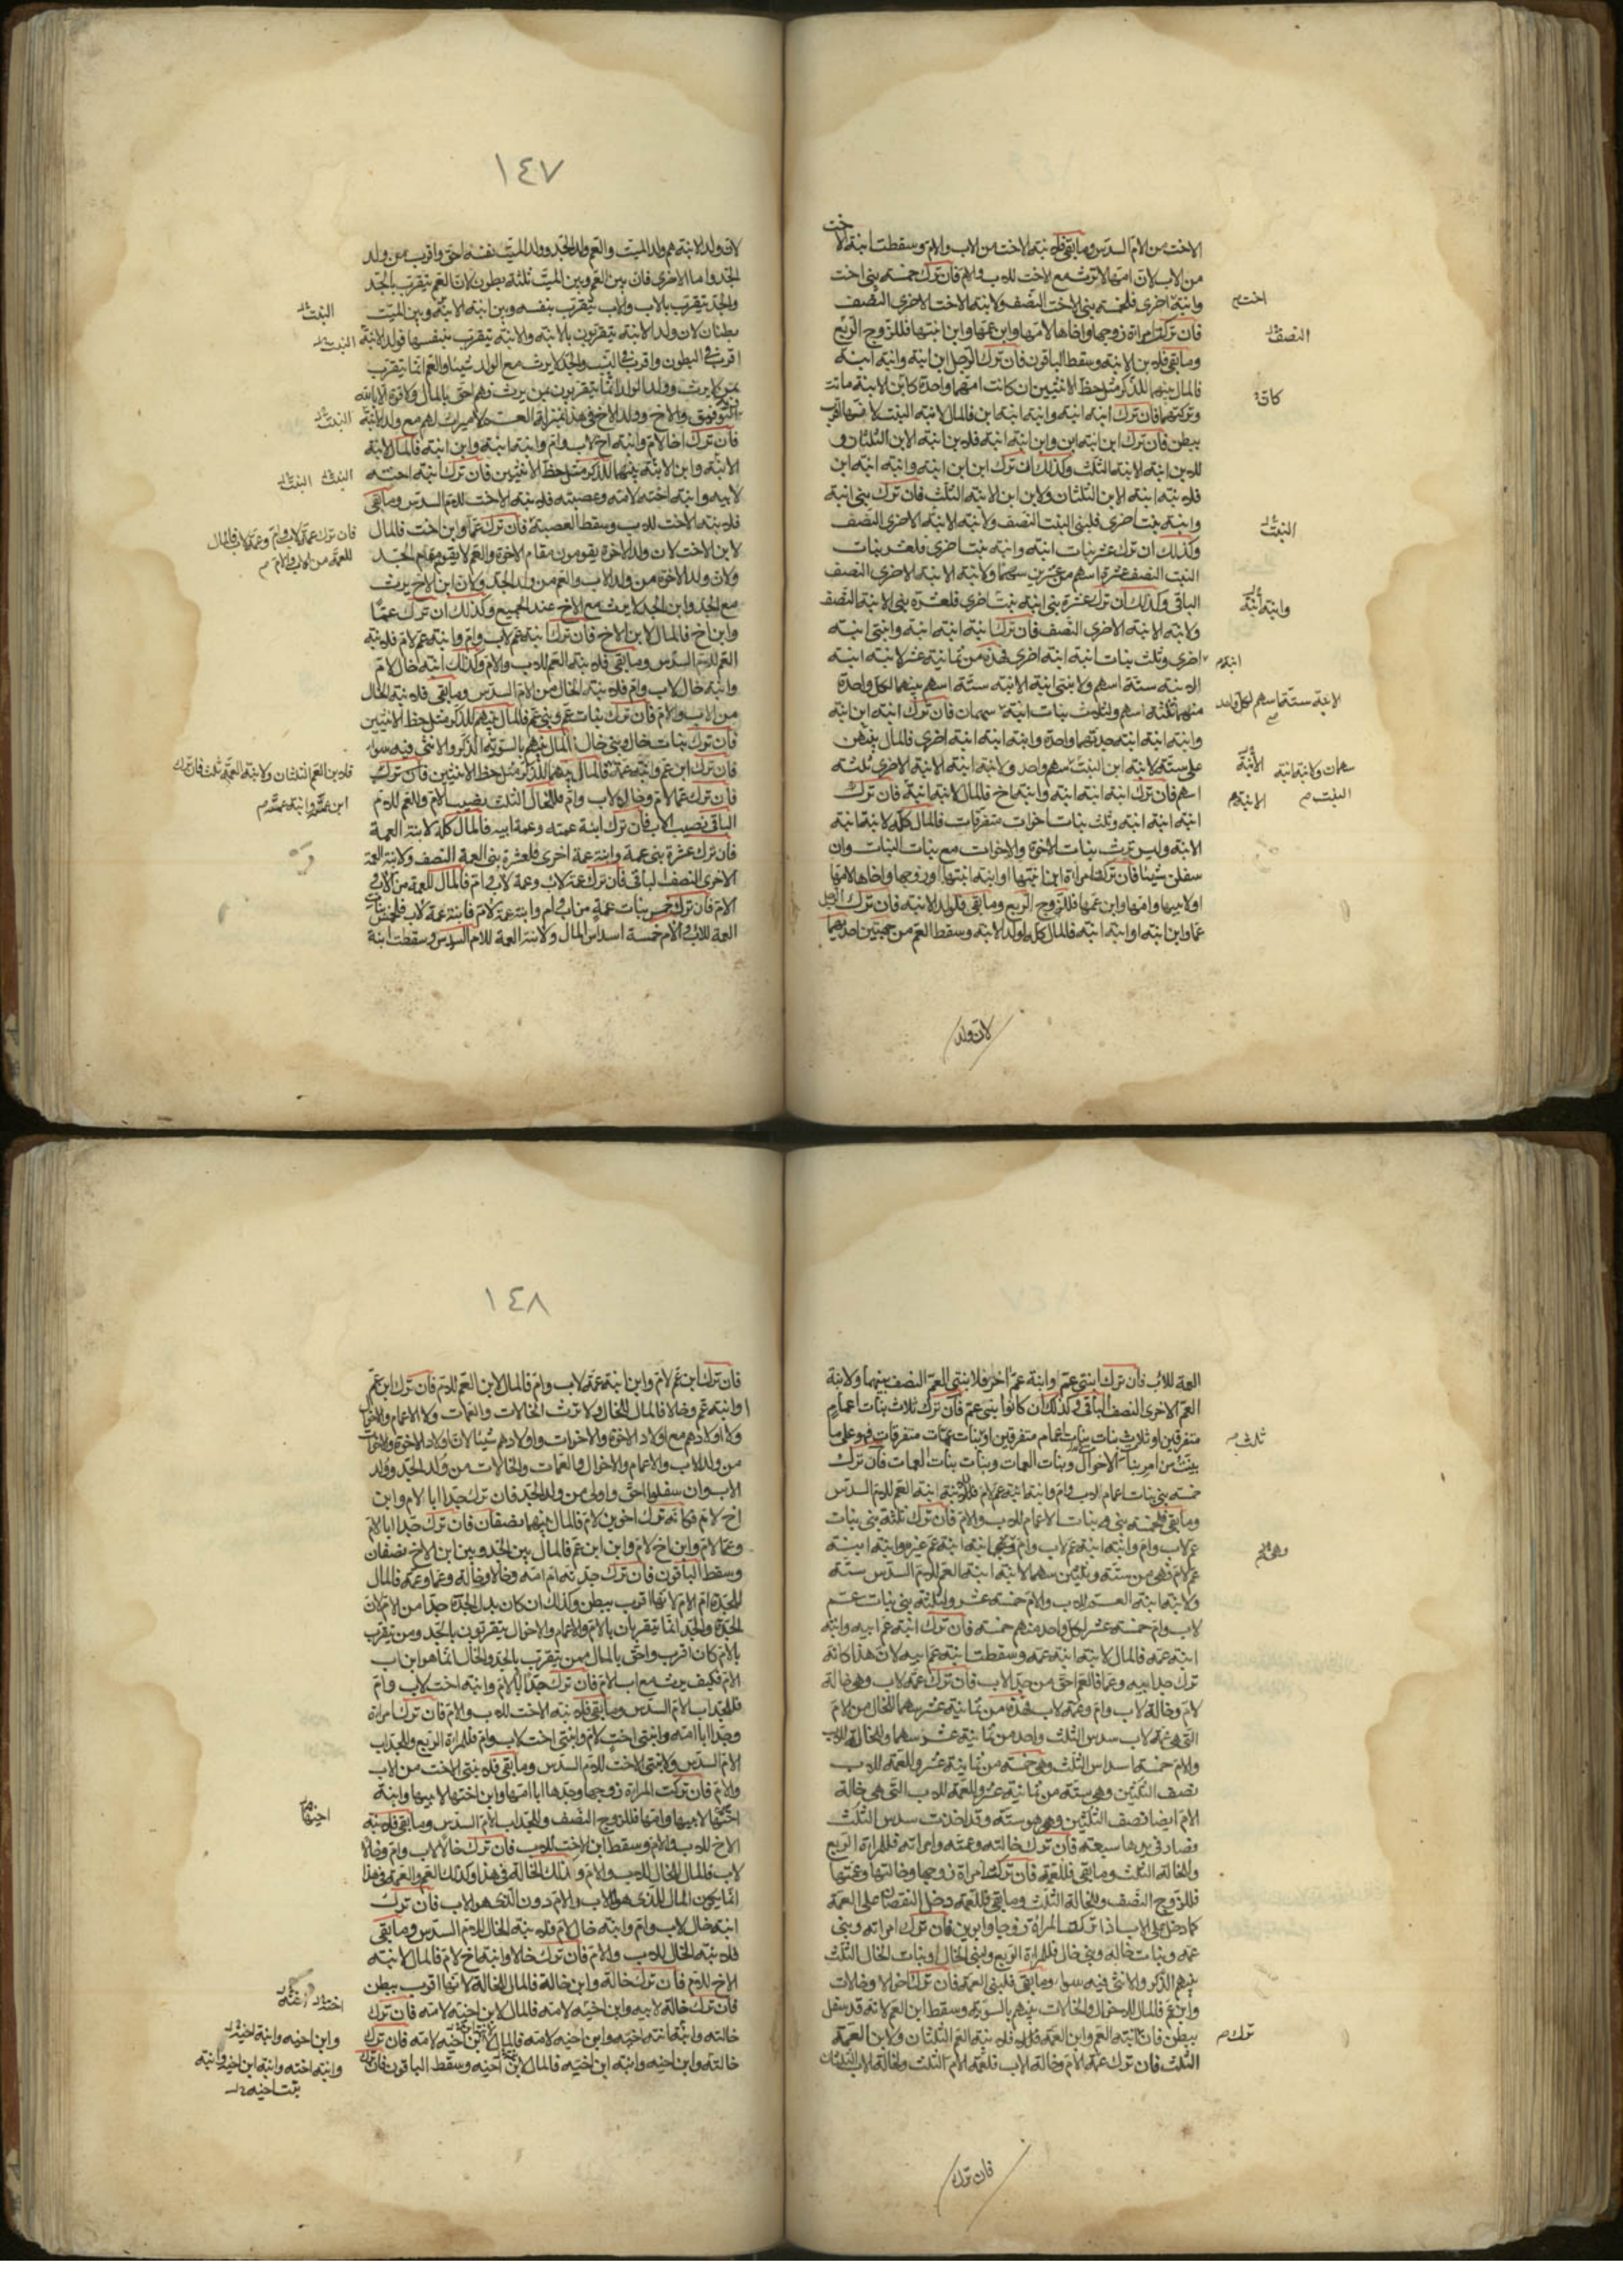 الاخت من الام السدس وما بقى فلابنة الاخت من الاب والام وسقطت ابنة الاخت
من الاب لان امها لا ترث مع الاخت للاب والام فان ترك خمسة بنى اخت
وابنة اخرى فلخمسة بنى الاخت النصف ولابنة الاخت الاخرى النصف
فان تركت امراة زوجها واخاها لامها وابن عمها وابن ابنتها فللزوج الربع
وما بقى فلابن الابنة وسقط الباقون فان ترك الرجل ابن ابنة وابنة ابنة
فالمال بينهما للذكر مثل حظ الانثيين ان كانت امهما واحدة كابن الابنة ماتت
وتركتهما فان ترك ابنة ابنة وابنة ابنة ابن فالمال لابنة البنت لانها اقرب
ببطن فان ترك ابن ابنة ابن وابن ابنة ابنة فلابن ابنة الابن الثلثان و
لابن ابنة الابنة الثلث وكذلك ان ترك ابن ابن ابنة وابنة ابنة ابن
فلابنة ابنة الابن الثلثان ولابن ابن الابنة الثلث فان ترك بنى ابنة
وابنة بنت اخرى فلبنى البنت النصف ولابنة الابنة الاخرى النصف
وكذلك ان ترك عشر بنات ابنة وابنة بنت اخرى فلعشر بنات
البنت النصف عشرة اسهم من عشرين سهما ولابنة الابنة الاخرى النصف
الباقى وكذلك ان ترك عشرة بنى ابنة بنت اخرى فلعشرة بنى الابنة النصف
ولابنة الابنة الاخرى النصف فان ترك ابنة ابنة ابنة وابنتى ابنة
اخرى وثلث بنات ابنة ابنة اخرى فهذه من ثمانية عشر لابنة ابنة
الابنة ستة اسهم ولابنتى ابنة الابنة ستة اسهم بينهما لكل واحدة
منهما ثلثة اسهم ولثلث بنات ابنة سهمان فان ترك ابنة ابن ابنة
وابنة ابنة ابنة جدتهما واحدة وابنة ابنة ابنة اخرى فالمال بينهن
على ستة لابنة ابن البنت سهم واحد ولابنة ابنة الابنة الاخرى ثلثة
اسهم فان ترك ابنة ابنة ابنة وابنة اخ فالمال لابنة ابنة ابنة فان ترك
ابنة ابنة ابنة وثلث بنات اخوات متفرقات فالمال كله لابنة ابنة
الابنة وليس ترث بنات الاخوة والاخوات مع بنات البنات وان
سفلن شيئا فان تركت امراة ابن ابنتها او ابنة ابنتها وزوجها واخاها لامها
او لابيها وامها وابن عمها فللزوج الربع وما بقى فلولد الابنة فان ترك الرجل
عما وابن ابنة او ابنة ابنة فالمال كله لولد الابنة وسقط العم من جهتين احديهما
اخت
النصف
كان
البنت
وابنة ابنة
ابنة
الابنة ستة اسهم لكل واحد
الابنة
سهمان ولابنة ابنة
البنت
الابنة
لان ولد
١٤٧
لان ولد الابنة هم ولد الميت والعم ولد الجد وولد الميت نفسه احق واقرب من ولد
الجد واما الاخرى فان بين العم وبين الميت ثلثة بطون لان العم يتقرب بالجد
والجد يتقرب بالاب والاب يتقرب بنفسه وبين ابنة الابنة وبين الميت
بطنان لان ولد الابنة يتقربون بالابنة والابنة يتقرب بنفسها فولد الابنة
اقرب فى البطون واقرب فى النسب والجد لا يرث مع الولد شيئا والعم انما يتقرب
بمن لا يرث وولد الولد انما يتقربون بمن يرث وهم احق بالمال ولا قوة الا بالله
التوفيق والاخ وولد الاخ فى هذا بمنزلة العم لا ميراث لهم مع ولد الابنة
فان ترك اخا لام وابنة اخ لاب وام وابنة ابنة وابن ابنة فالمال لابنة
الابنة وابن الابنة بينهما للذكر مثل حظ الانثيين فان ترك ابنة اخته
لابيه وابنة اخته لامه وعصبته فلابنة الاخت للام السدس وما بقى
فلابنة الاخت للاب وسقط العصبة فان ترك عما وابن اخت فالمال
لابن الاخت لان ولد الاخوة يقومون مقام الاخوة والعم لا يقوم مقام الجد
ولان ولد الاخوة من ولد الاب والعم من ولد الجد ولان ابن الاخ يرث
مع الجد وابن الجد لا يرث مع الاخ عند الجميع وكذلك ان ترك عما
وابن اخ فالمال لابن الاخ فان ترك ابنة عم لاب وام وابنة عم لام فلابنة
العم للام السدس وما بقى فلابنة العم للاب والام وكذلك ابنة خال لام
وابنة خال لاب وام فلابنة الخال من الام السدس وما بقى فلابنة الخال
من الاب والام فان ترك بنات عم وبنى عم فالمال بينهم للذكر مثل حظ الانثيين
فان ترك بنات خال وبنى خال فالمال بينهم بالسوية الذكر والانثى فيه سواء
فان ترك ابن عم وابنة عمة فالمال بينهما للذكر مثل حظ الانثيين فان ترك
فان ترك عما لام وخالا لاب وام فللخال الثلث نصيب الام وللعم للام
الباقى نصيب الاب فان ترك ابنة عمته وعمة ابيه فالمال كله لابنة العمة
فان ترك عشرة بنى عمة وابنة عمة اخرى فلعشرة بنى العمة النصف ولابنة العمة
الاخرى النصف الباقى فان ترك عمة لاب وعمة لاب وام فالمال للعمة من الاب و
الام فان ترك خمس بنات عمة من اب وام وابنة عمة لام فابنة عمة لاب فلخمس بنات
العمة للاب والام خمسة اسداس المال ولابنة العمة للام السدس وسقطت ابنة
البنت
البنت
البنت
البنت البنت
فان ترك عمة لاب وام وعمة لاب فالمال
للعمة من الاب والام
فلابن العم الثلثان ولابنة العمة ثلث فان ترك
ابن عمة وابنة عمة
العمة للاب فان ترك ابنتى عم وابنة عم اخر فلابنتى العم النصف بينهما ولابنة
العم الاخرى النصف الباقى وكذلك ان كانوا بنى عم فان ترك ثلاث بنات اعمام
متفرقين او ثلاث بنات بنات اعمام متفرقين او بنات عمات متفرقات فهو على ما
بينت من امر بنات الاخوال وبنات العمات وبنات بنات العمات فان ترك
خمسة بنى بنات اعمام لاب وام وابنة ابنة عم لام فلابنة ابنة العم للام السدس
وما بقى فلخمسة بنى بنات الاعمام للاب والام فان ترك ثلثة بنى بنات
عم لاب وام وابنة ابنة عم لاب وام وابنة ابنة عم غيرهم وابنة ابنة
عم لام فهى من ستة وثلثين سهما لابنة ابنة العم للام السدس ستة
ولابنة ابنة العم للاب والام خمسة عشر ولثلثة بنى بنات عم
لاب وام خمسة عشر لكل واحد منهم خمسة فان ترك ابنة عم ابيه وابنة
ابنة عمه فالمال لابنة ابنة عمه وسقطت ابنة عم ابيه لان هذا كانه
ترك جد ابيه وعما فالعم احق من جد الاب فان ترك عمة لاب وهى خالة
لام وخالة لاب وام وعمة لاب فهذه من ثمانية عشر سهما للخالة من الام
التى هى عمة لاب سدس الثلث واحد من ثمانية عشر سهما وللخالة للاب
والام خمسة اسداس الثلث وهى خمسة من ثمانية عشر وللعمة للاب
نصف الثلثين وهى ستة من ثمانية عشر وللعمة للاب التى هى خالة
الام ايضا نصف الثلثين وهو ستة وقد اخذت سدس الثلث
وصار فى يدها سبعة فان ترك خالته وعمته وامراته فللمراة الربع
وللخالة الثلث وما بقى فللعمة فان تركت امراة زوجها وخالتها وعمتها
فللزوج النصف وللخالة الثلث وما بقى فللعمة دخل النقصان على العمة
كما دخل على الاب اذا تركت المراة زوجا وابوين فان ترك امراته وبنى
عمة وبنات خالة وبنى خال فللمراة الربع ولبنى الخال وبنات الخال الثلث
بينهم الذكر والانثى فيه سواء وما بقى فلبنى العمة فان ترك اخوالا وخالات
وابن عم فالمال للاخوال والخالات بينهم بالسوية وسقط ابن العم لانه قد سفل
ببطن فان ابنة العم وابن العمة فلابنة العم الثلثان ولابن العمة
الثلث فان ترك عمة الام وخالة الاب فلعمة الام الثلث ولخالة الاب الثلثان
ثلث
وهى
ترك
فان ترك
١٤٨
فان ترك ابن عم لام وابن ابنة عمة لاب وام فالمال لابن العم للام فان ترك ابن عم
وابنة عم وخالا فالمال للخال ولا ترث الخالات والعمات ولا الاعمام والاخوال
ولا اولادهم مع اولاد الاخوة والاخوات واولادهم شيئا لان اولاد الاخوة والاخوات
من ولد الاب والاعمام والاخوال والعمات والخالات من ولد الجد وولد
الاب وان سفلوا احق واولى من ولد الجد فان ترك جدا ابا الام وابن
اخ لام فكانه ترك اخوين لام فالمال بينهما نصفان فان ترك جدا ابا الام
وعما لام وابن اخ لام وابن ابن عم فالمال بين الجد وبين ابن الاخ نصفان
وسقط الباقون فان ترك جدته ام امه وخالا وخالة وعما وعمة فالمال
للجدة ام الام لانها اقرب ببطن وكذلك ان كان بدل الجدة جدا من الام لان
الجدة والجد انما يتقربان بالام والاعمام والاخوال يتقربون بالجد ومن يتقرب
بالام كان اقرب واحق بالمال ممن يتقرب بالجد والخال انما هو ابن اب
الام فكيف يرث مع اب الام فان ترك جدا ابا الام وابنة اخت لاب وام
فللجد اب الام السدس وما بقى فلابنة الاخت للاب والام فان ترك امراة
وجدا ابا امه وابنتى اخت لام وابنتى اخت لاب وام فللمراة الربع وللجد اب
الام السدس ولابنتى الاخت للام السدس وما بقى فلابنتى الاخت من الاب
والام فان تركت المراة زوجها وجدها ابا امها وابن اختها لابيها وابنة
اختها لابيها وامها فللزوج النصف وللجد اب الام السدس وما بقى فلابنة
الاخ للاب والام وسقط ابن الاخت للاب فان ترك خالا لاب وام وخالا
لاب فالمال للخال للاب والام وكذلك الخالة فى هذا وكذلك العم والعمة فى هذا
انما يكون المال للذى هو للاب والام دون الذى هو للاب فان ترك
ابنة خال لاب وام وابنة خال لام فلابنة الخال للام السدس وما بقى
فلابنة الخال للاب والام فان ترك خالا وابنة اخ لام فالمال لابنة
الاخ للام فان ترك خالة وابن خالة فالمال للخالة لانها اقرب ببطن
فان ترك خالة لابيه وابن اخيه لامه فالمال لابن اخيه لامه فان ترك
خالته وابنة ابنة اخيه وابن اخيه لامه فالمال لابن اخيه لامه فان ترك
خالته وابن اخيه وابنة ابن اخيه فالمال لابن اخيه وسقط الباقون فان ترك
اخيها
وابن اخيه وابنة اخيه
وابنة اخته وابنة ابن اخيه وابنة
بنت اخيه